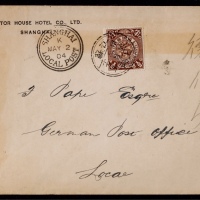 TOR HOUSE HOTEL CO., LTD.
SHANGHAI
SHANGHAI
MAY 2
04
LOCAL POST
J. Pape Esqre
German Post Office
Local